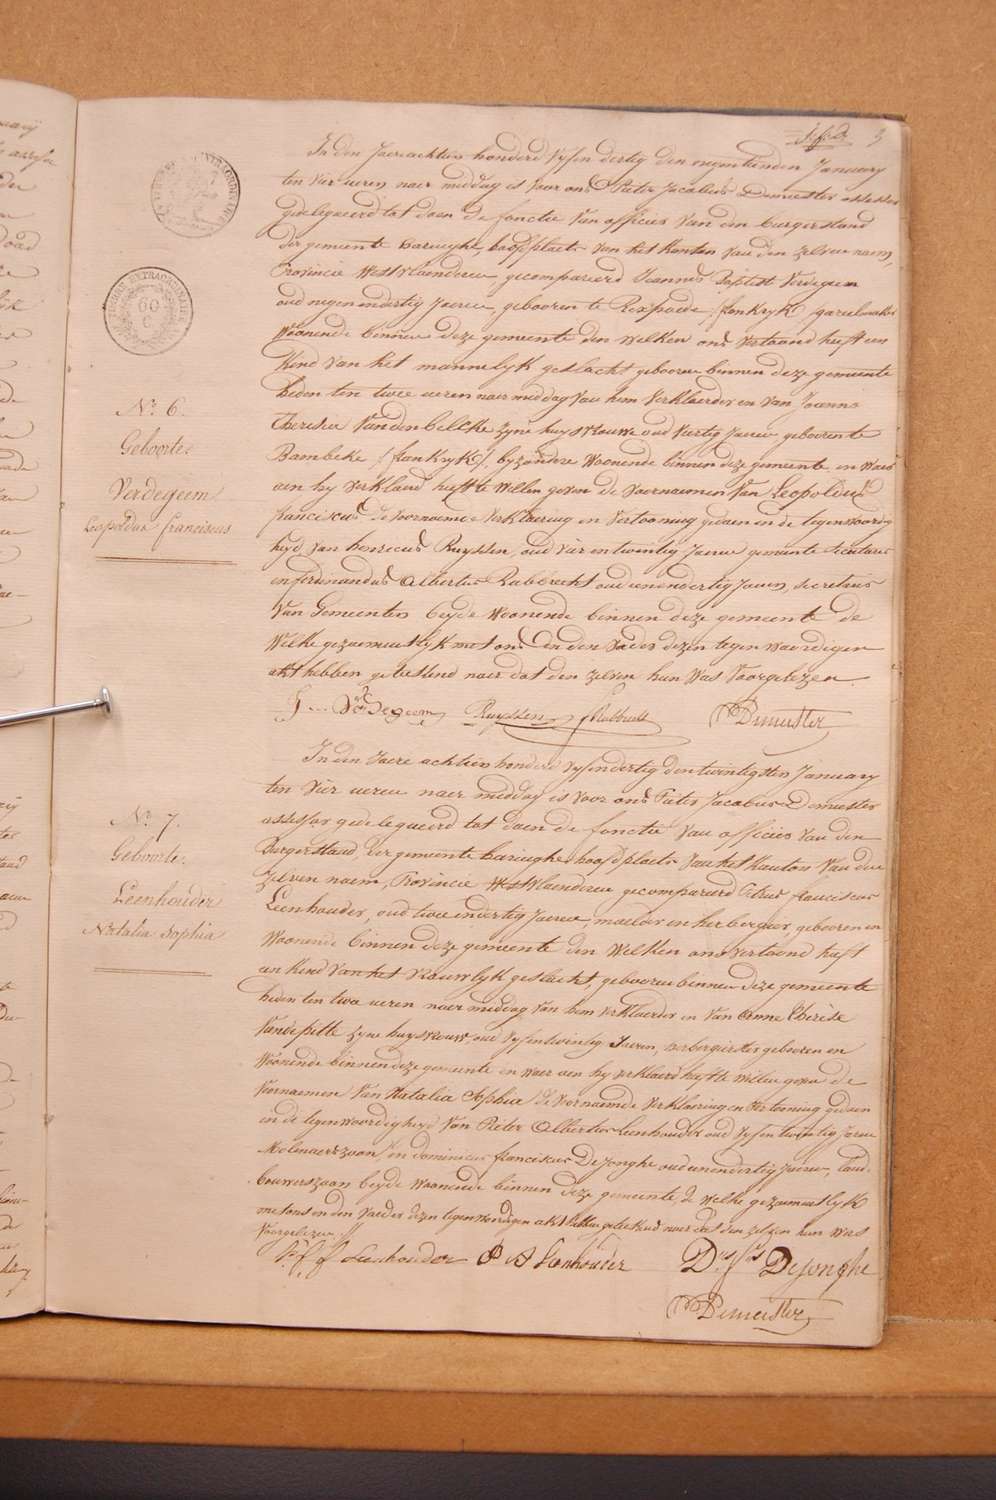 3
In den Jaere achtien honderd vyfendertig den negentienden January
ten vier ueren naer middag is voor ons Pieter Jacobus Demeester assessor
gedelegueerd tot doen de fonctie van officier van den burgerstand
der gemeente haringhe, hoofdplaets van het kanton van den zelven naem,
Provincie Westvlaenderen gecompareerd Joannes Baptist Verdegeem
oud negenendertig jaeren, gebooren te Rexpoede (frankryk)
Woonende binnen deze gemeente den welken ons vertoond heeft een
Kind van het mannelyk geslacht gebooren binnen deze gemeente
heden ten twee ueren naer middag van hem verklaerder en van Joanna
Theresia Vandenbelcke zyne huysvrouwe oud veertig jaeren gebooren te
Bambeke (frankryk), byzondere woonende binnen deze gemeente en waer
aen hy verklaerd heeft te willen geven de voornaemen van Leopoldus
franciscus de voornoemde verklaering en vertooning gedaen in de tegenwoordig
heyd van henricus Ruyssen, oud vier en twintig jaeren gemeente secretaris
en ferdinandus Albertus Rabbrecht oud eenendertig jaeren, secretaris
van Gemeenten beyde woonende binnen deze gemeente de
Welke gezaementlyk met ons en den vader dezen tegenwoordigen
akt hebben geteekend naer dat den zelven hun was voorgelezen.
Verdegeem Ruyssen Demeester
N.º 6.
Geboorte
Verdegeem
Leopoldus franciscus
In den Jaere achtien honderd vyfendertig den twintigsten January
ten vier ueren naer middag is voor ons Pieter Jacobus Demeester
assessor gedelegueerd tot doen de fonctie van officier van den
Burgerstand, der gemeente haringhe hoofdplaets van het kanton van den
zelven naem, Provincie Westvlaenderen gecompareerd Petrus franciscus
Leenhouder, oud twee endertig jaeren, maelder en herbergier, gebooren en
woonende binnen deze gemeente den welken ons vertoond heeft
een kind van het vrouwlyk geslacht, gebooren binnen deze gemeente
heden ten twee ueren naer middag van hem verklaerder en van Anne Thérèse
Vandepitte zyne huysvrouw, oud vyfentwintig jaeren, herbergierster gebooren en
Woonende binnen deze gemeente en waer aen hy verklaerd heeft te willen geven de
voornaemen van Natalia Sophia de voornoemde verklaering en vertooning gedaen
in de tegenwoordigheyd van Pieter Albertus Leenhouder oud vyfentwintig jaeren
Molenaerszoon, en dominicus franciscus Dejonghe oud eenendertig jaeren, land-
bouwerszoon beyde woonende binnen deze gemeente, de welke gezaementlyk
met ons en den vaeder dezen tegenwoordigen akt hebben geteekend naer dat den zelven hun was
Voorgelezen.
Leenhouder P A Leenhouder D.us f.us Dejonghe
Demeester
N.º 7.
Geboorte.
Leenhouder
Natalia Sophia